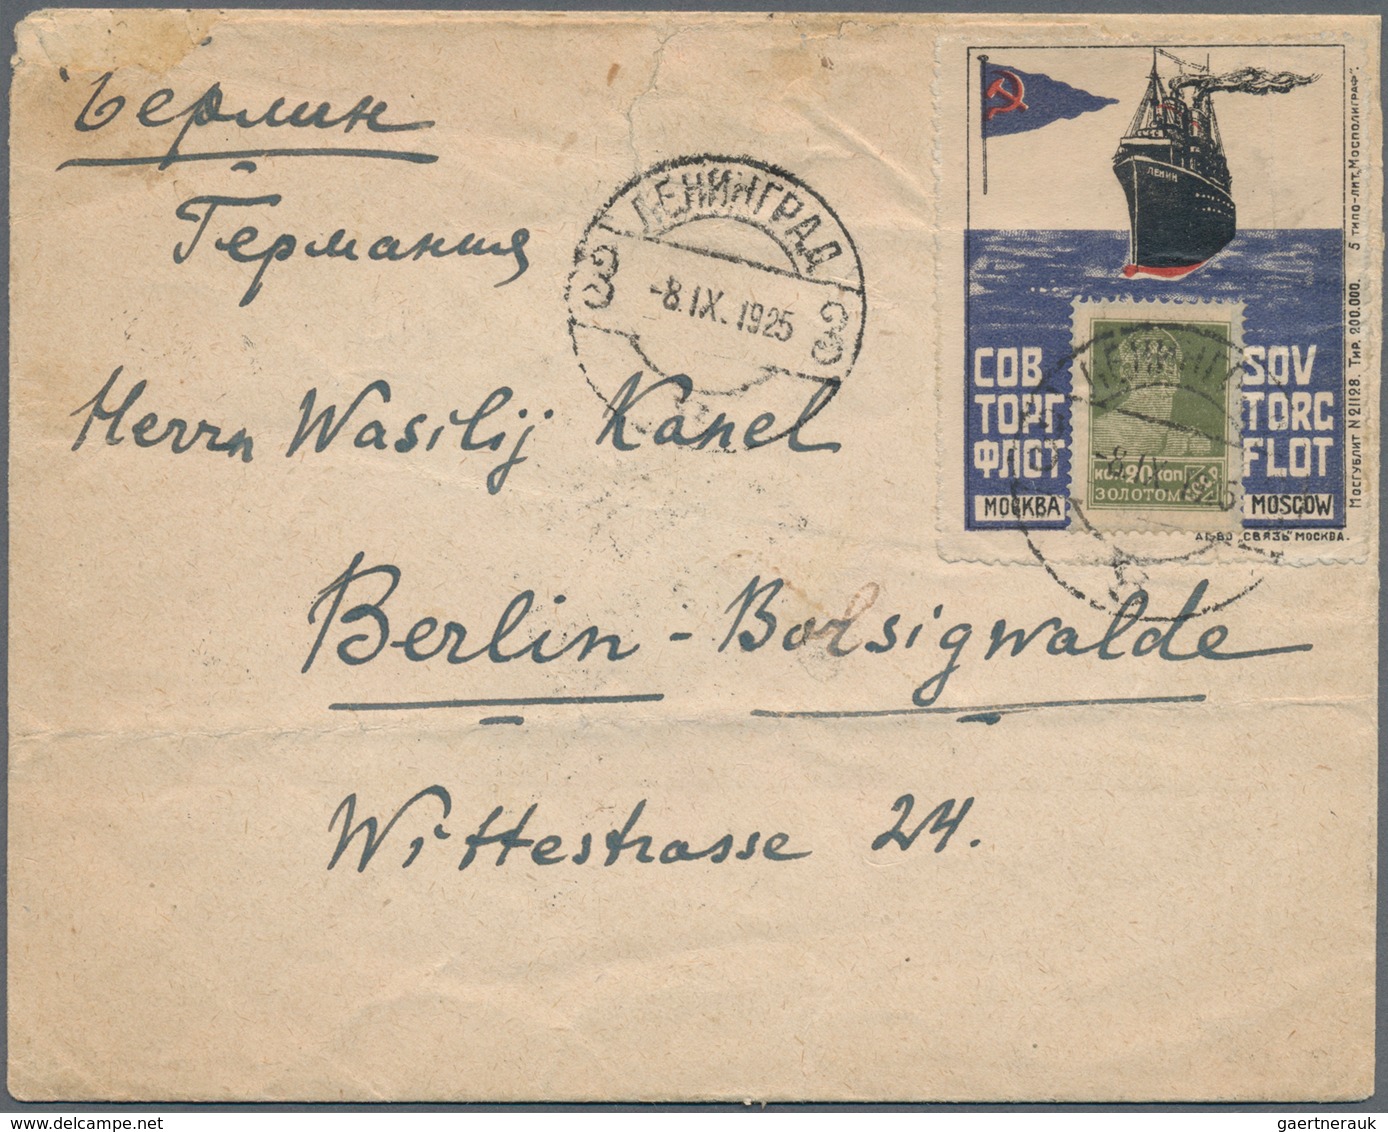 Берлин
Германия
ЛЕНИНГРАД
-8.IX.1925
Herrn Wasilij Kanel
Berlin - Borsigwalde
Wittestrasse 24.
ЛЕНИН
СОВ
ТОРГ
ФЛОТ
МОСКВА
SOV
TORG
FLOT
MOSCOW
КОП 20 КОП
ЗОЛОТОМ
-8.IX
АГ-ВО „СВЯЗЬ" МОСКВА.
Мосгублит N 21128. Тир. 200.000. 5 типо-лит. „Мосполиграф".
gaertnerauk